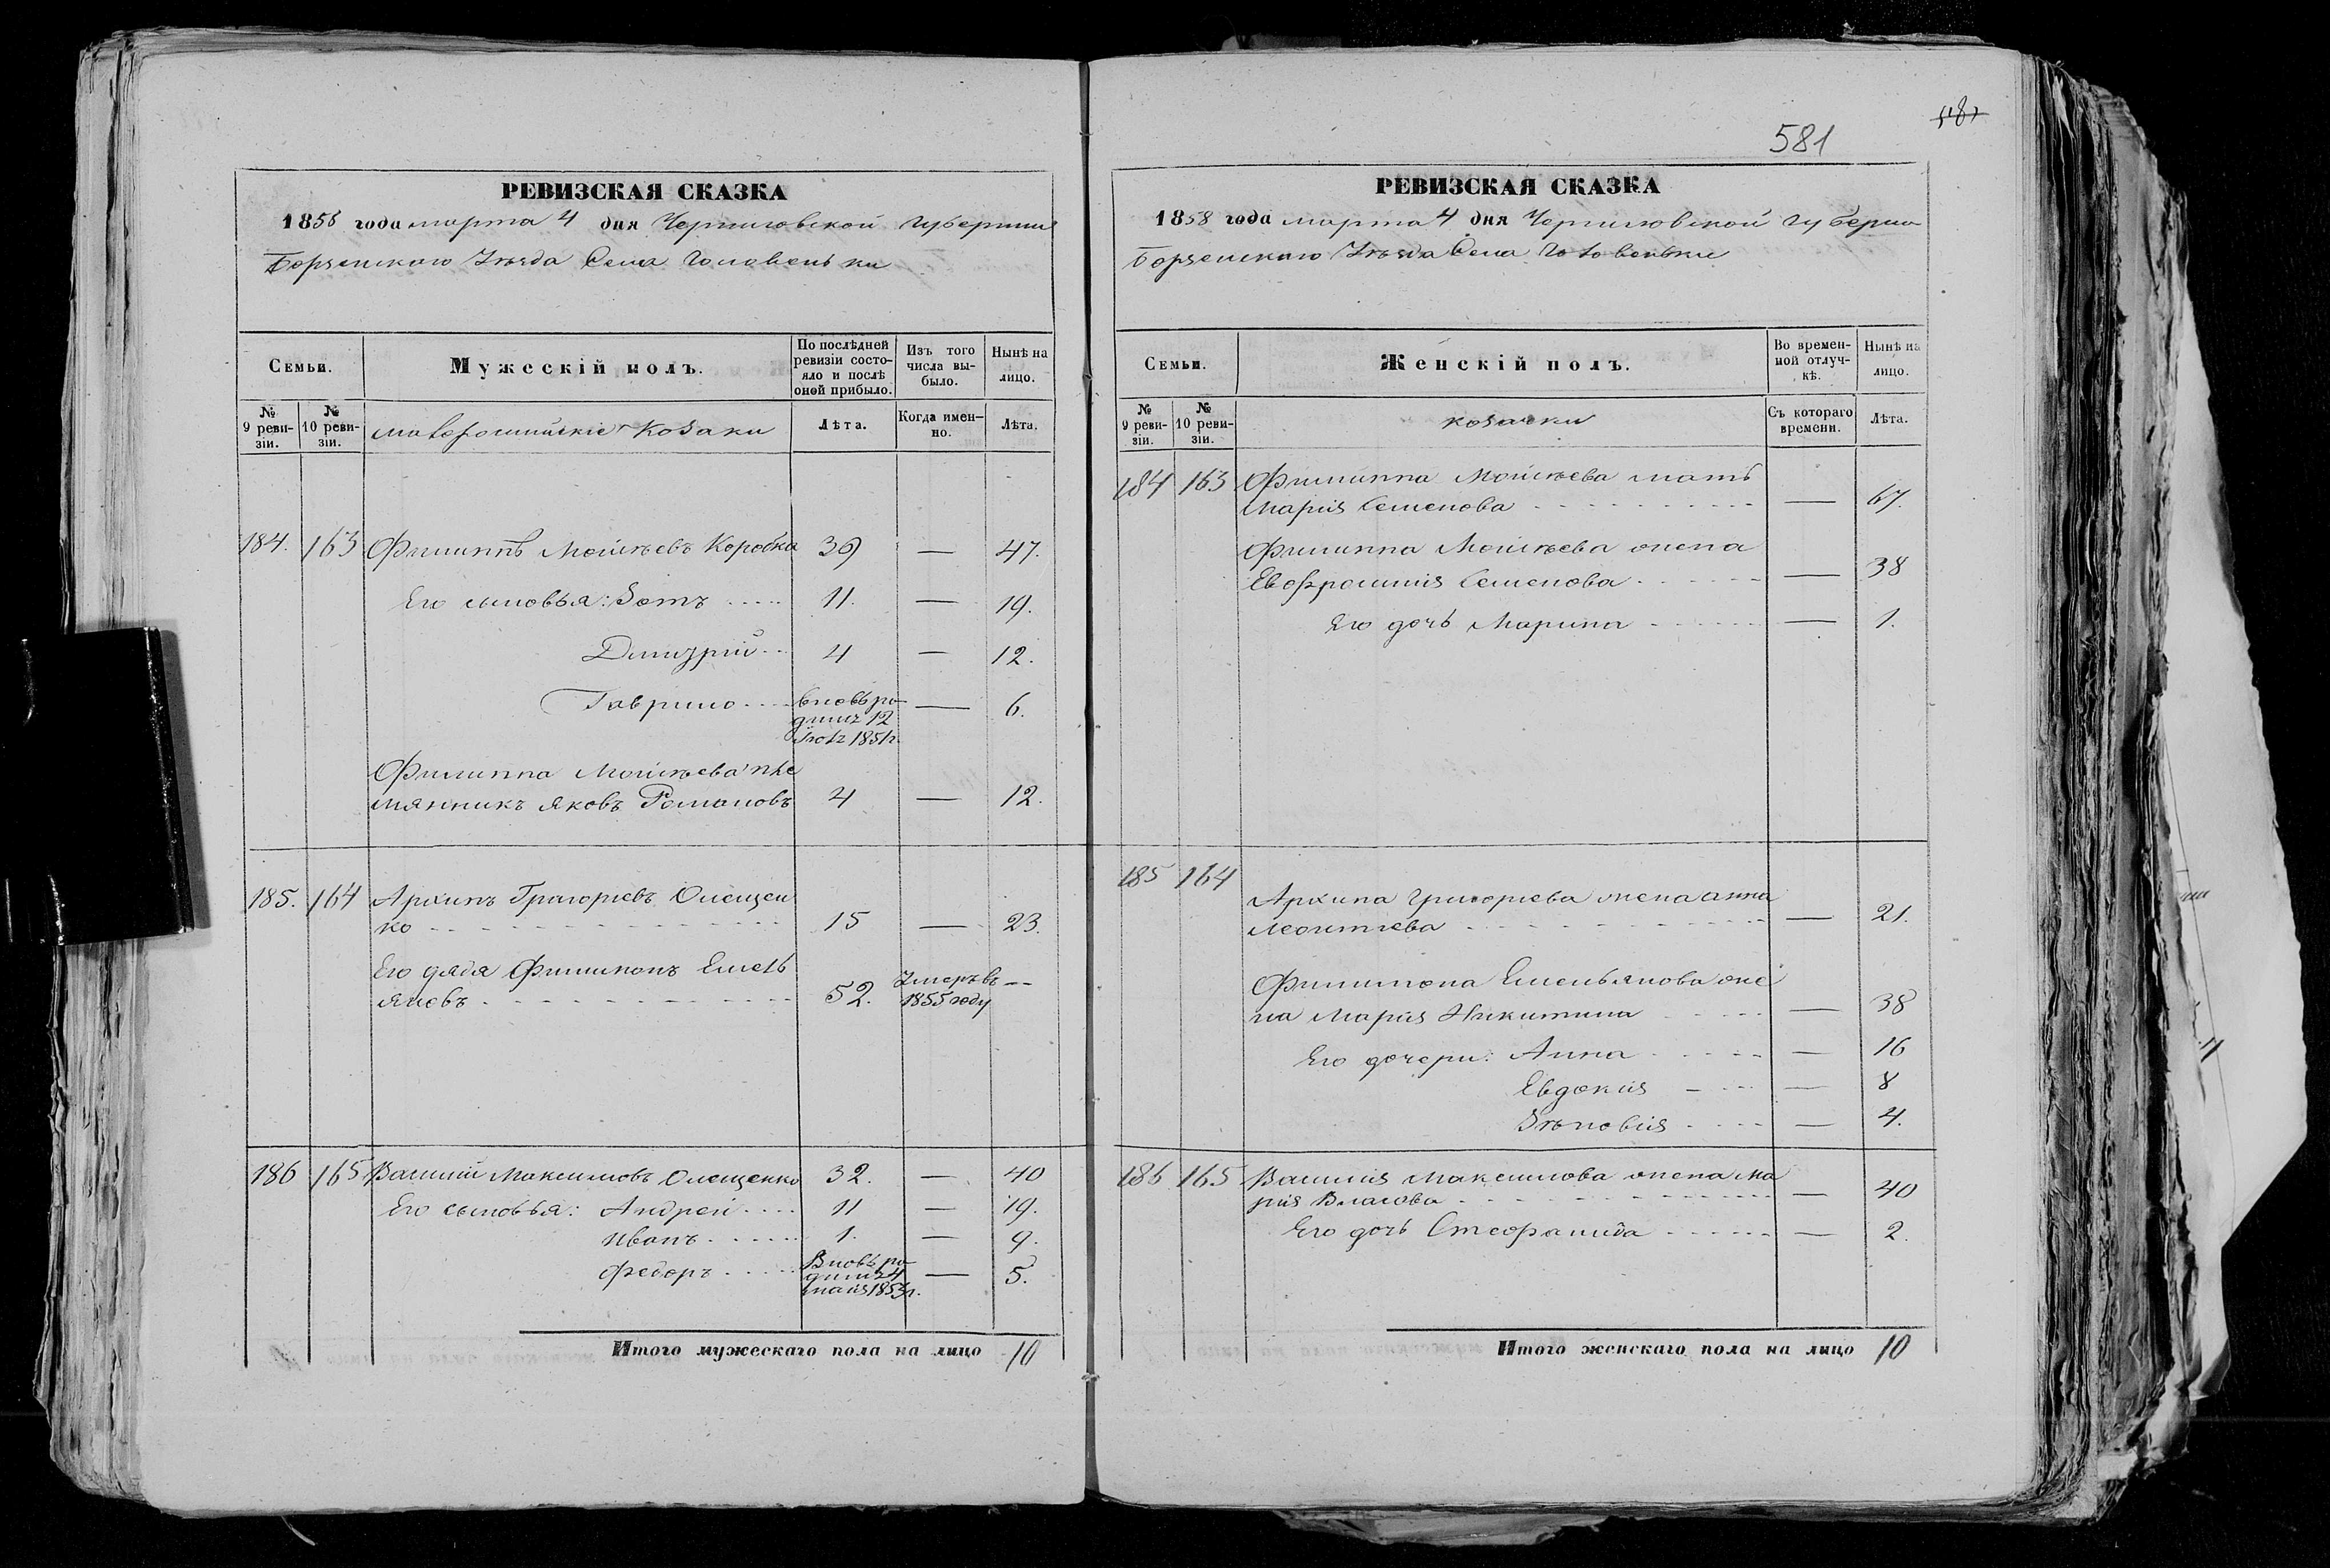 581
РЕВИЗСКАЯ СКАЗКА
1858 года марта 4 дня Черниговской губернии
Борзенского Уѣзда Села Головеньки
Семьи.
Мужескій полъ.
По послѣдней ревизіи состояло и послѣ оной прибыло.
Изъ того числа выбыло.
Нынѣ на лицо.
№ 9 ревизіи.
№ 10 ревизіи.
малороссійскіе козаки
Лѣта.
Когда именно.
Лѣта.
184. 163 Филиппъ Мойсѣевъ Коробка 39 — 47.
Его сыновья: Зотъ 11. — 19.
Дмитрій 4 — 12.
Гаврило вновь ро — 6.
дился 12
1851г.
Филиппа Мойсѣева пле
мянникъ Яковъ Романовъ 4 — 12.
185. 164 Архипъ Григорьевъ Олещен
ко 15 — 23.
Его дядя Филимонъ Емель
яновъ 52. Умеръ въ 1855 году —
186 165 Василій Максимовъ Олещенко 32. — 40
Его сыновья: Андрей 11 — 19.
Иванъ 1. — 9.
Федоръ Вновь ро — 5.
дился 4
мая 1853г.
Итого мужескаго пола на лицо 10
РЕВИЗСКАЯ СКАЗКА
1858 года марта 4 дня Черниговской губерни
Борзенского Уѣзда Села Головеньки
Семьи.
Женскій полъ.
Во временной отлучкѣ.
Нынѣ на лицо.
№ 9 ревизіи.
№ 10 ревизіи.
козачки
Съ котораго времени.
Лѣта.
184 163 Филиппа Мойсѣева мать
Марія Семенова — 67.
Филиппа Мойсѣева жена
Евфросинія Семенова — 38
Его дочь Марина — 1.
185 164
Архипа Григорьева жена Анна
Леонтіева — 21.
Филимона Емельянова же
на Марія Никитина — 38
Его дочери: Анна — 16
Евдокія — 8
Зѣновія — 4.
186 165 Василія Максимова жена Ма
рія Власова — 40
Его дочь Стефанида — 2.
Итого женскаго пола на лицо 10